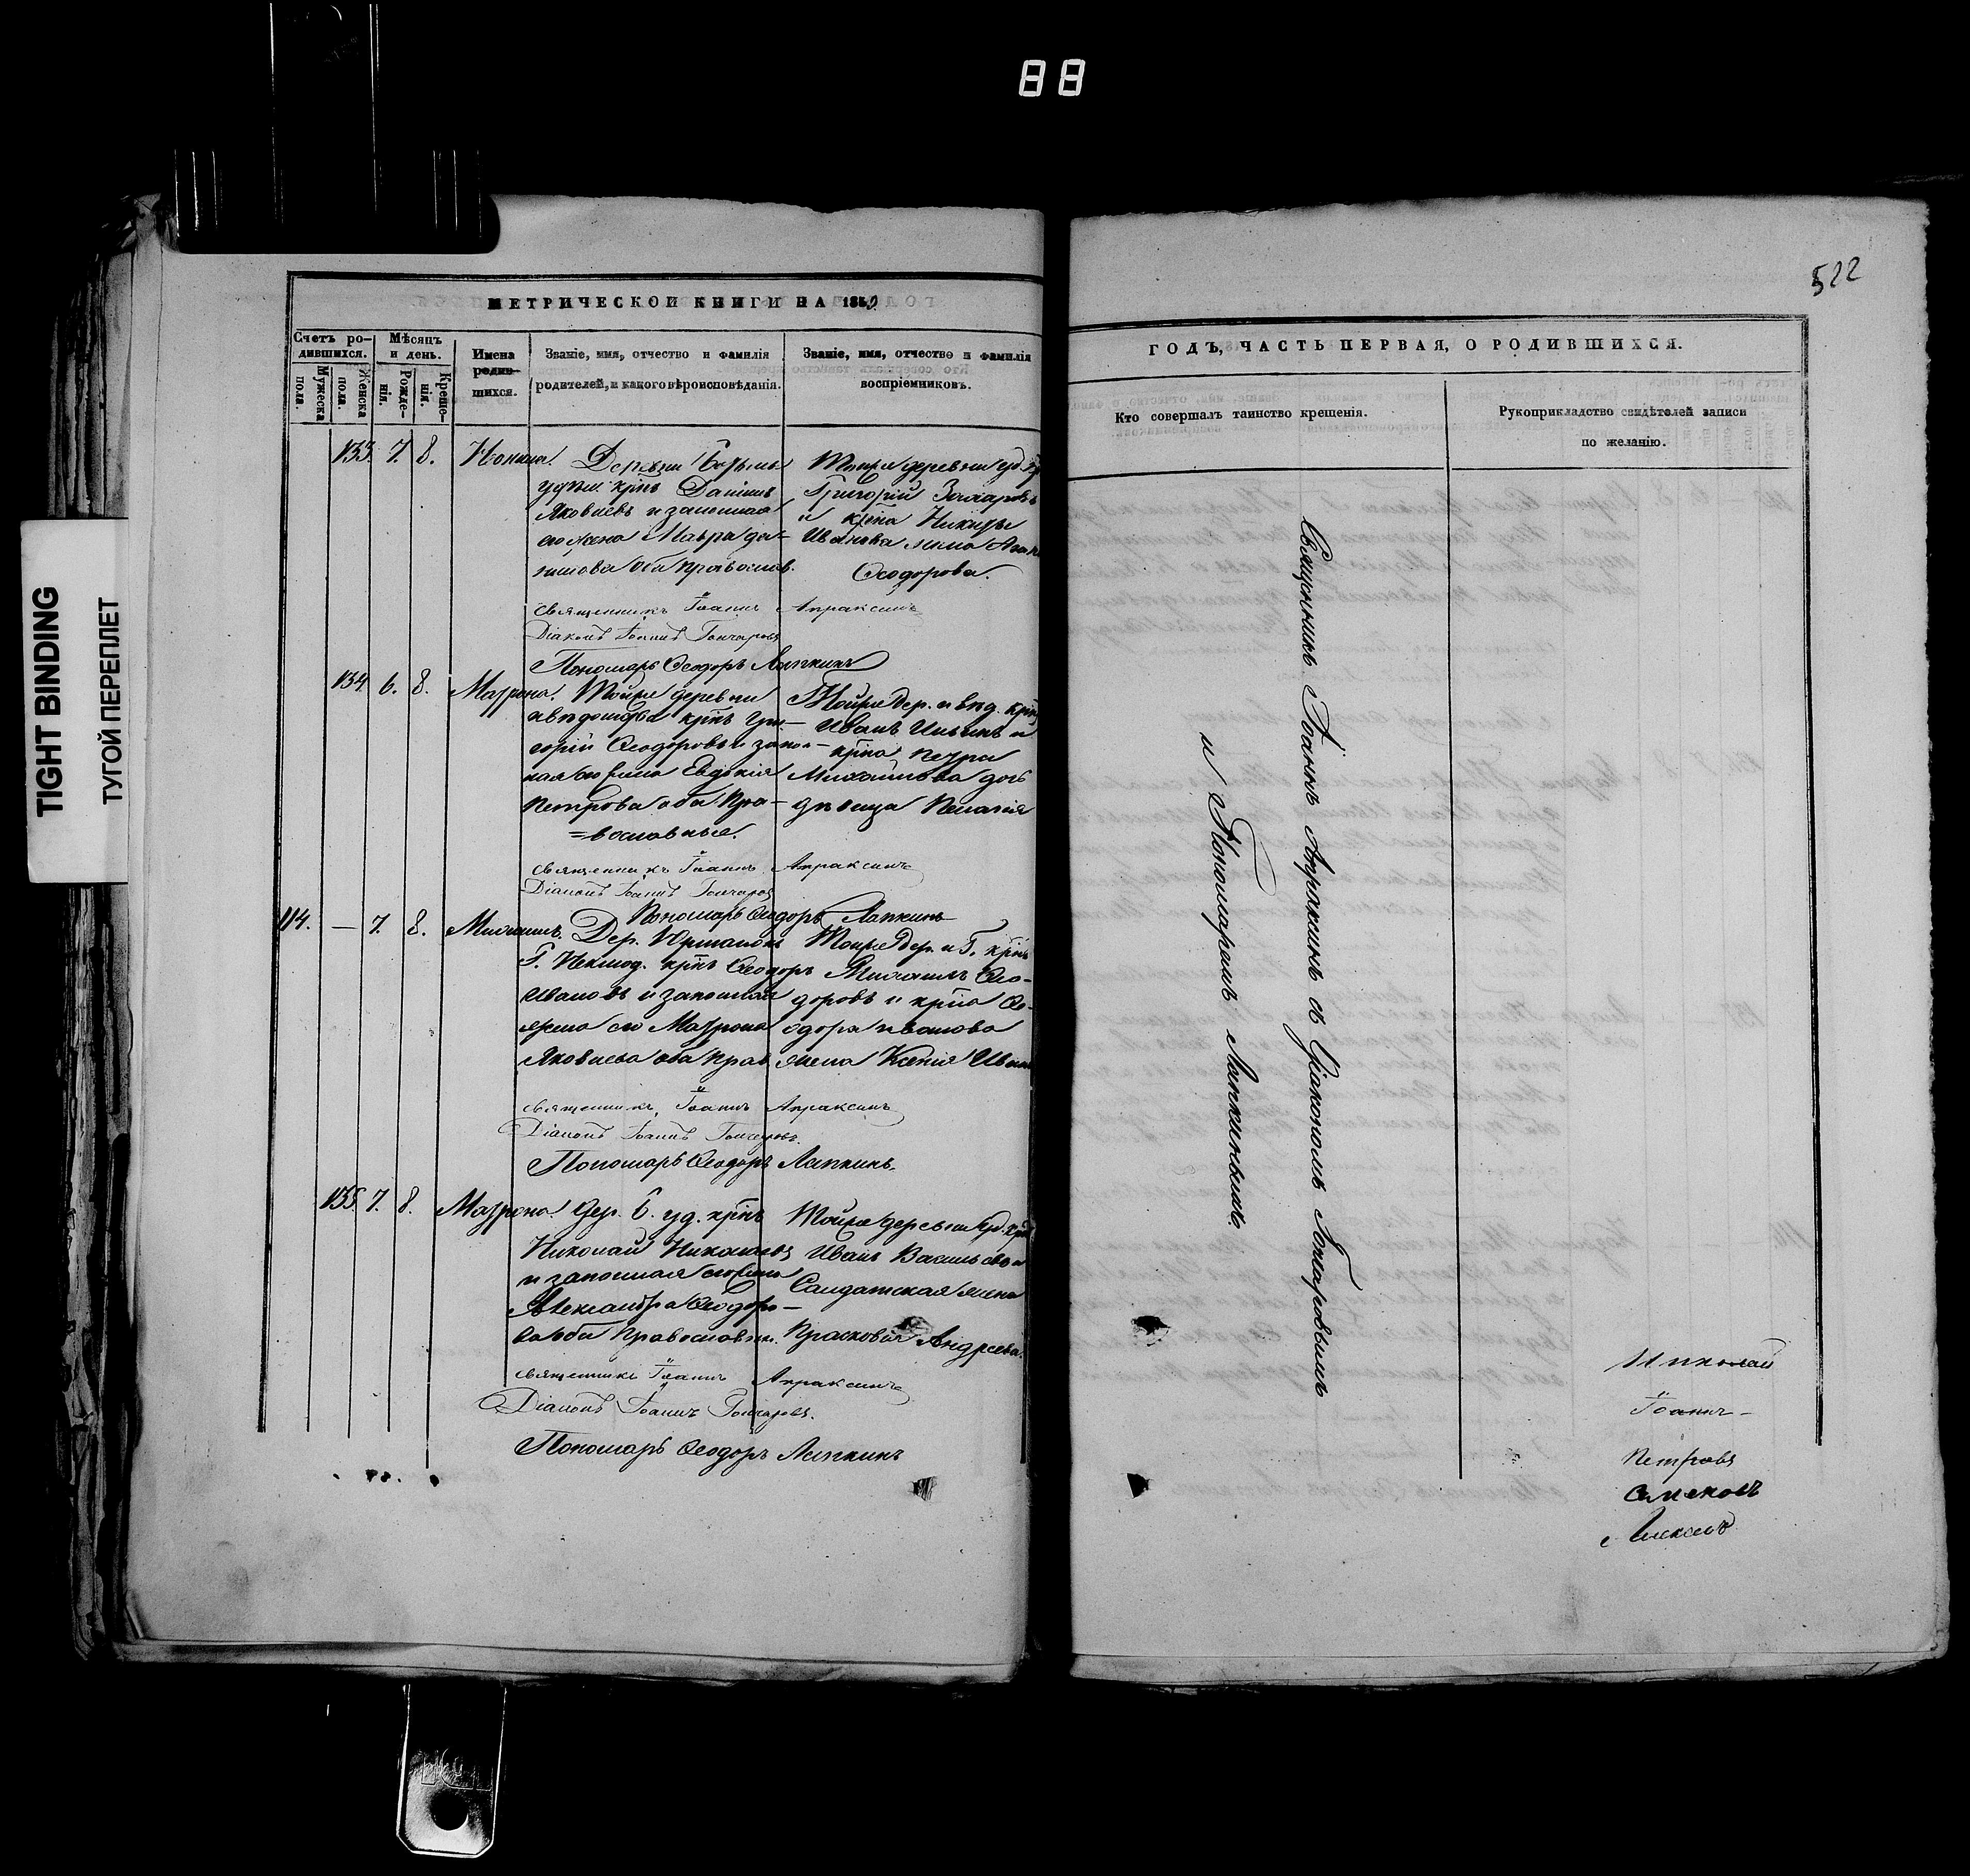 88
TIGHT BINDING
ТУГОЙ ПЕРЕПЛЕТ
МЕТРИЧЕСКОЙ КНИГИ НА 1850
Счетъ ро-
дившихся.
Мужеска
пола.
Женска
пола.
Мѣсяцъ
и день.
Рожде-
нія.
Креще-
нія.
Имена
родив-
шихся.
Званіе, имя, отчество и фамилія
родителей, и какого вѣроисповѣданія.
Званіе, имя, отчество и фамилія
воспріемниковъ.
133. 7. 8.
Деревни
крнъ Даніилъ
Яковлевъ и законная
его жена Мавра Да-
нилова оба православ.
Тойже деревни уд.
Григорій Захаровъ
и крна Никиты
Иванова жена
Ѳеодорова.
Священникъ Іоаннъ Апраксинъ
Діаконъ Іоаннъ Гончаровъ
Пономарь Ѳеодоръ Лапкинъ
134. 6. 8. Матрона.
Тойже деревни
и вѣдомства крнъ Гри-
горій Ѳеодоровъ и закон-
ная его жена Евдокія
Петрова оба пра-
=вославные.
Тойже дер. и вѣд. крнъ
Иванъ Ильинъ и
крна Петра
Михайлова дочь
дѣвица Пелагія
Священникъ Іоаннъ Апраксинъ
Діаконъ Іоаннъ Гончаровъ
Пономарь Ѳеодоръ Лапкинъ
114. — 7. 8. Михаилъ.
Дер.
крнъ Ѳеодоръ
Ивановъ и законная
жена его Матрона
Яковлева оба прав
Тойже дер. и Г. крнъ
Михаилъ Ѳео-
доровъ и крна Ѳе-
одора Иванова
жена Ксенія Иван
Священникъ Іоаннъ Апраксинъ
Діаконъ Іоаннъ Гончаровъ.
Пономарь Ѳеодоръ Лапкинъ.
135. 7. 8. Матрона.
Дер. Б. уд. крнъ
Николай Николаевъ
и законная его жена
Александра Ѳеодоро-
ва оба православн.
Тойже деревни уд. крнъ
Иванъ Васильевъ и
Салдатская жена
Прасковья Андреева.
Священникъ Іоаннъ Апраксинъ
Діаконъ Іоаннъ Гончаровъ.
Пономарь Ѳеодоръ Лапкинъ
522
ГОДЪ, ЧАСТЬ ПЕРВАЯ, О РОДИВШИХСЯ.
Кто совершалъ таинство крещенія.
Рукоприкладство свидѣтелей записи
по желанію.
Священникъ Іоаннъ Апраксинъ съ Діакономъ Гончаровымъ
и Пономаремъ Лапкинымъ.
Николай
Іоаннъ
Петровъ
Семеновъ